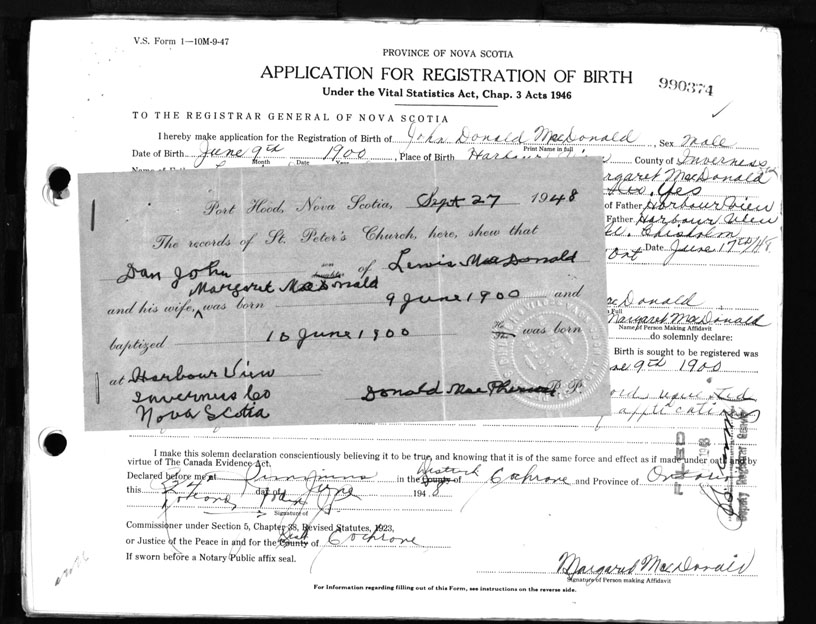 V.S. Form 1—10M-9-47
PROVINCE OF NOVA SCOTIA
APPLICATION FOR REGISTRATION OF BIRTH
990374
Under the Vital Statistics Act, Chap. 3 Acts 1946
TO THE REGISTRAR GENERAL OF NOVA SCOTIA
I hereby make application for the Registration of Birth of John Donald MacDonald, Sex Male
Print Name in full
Date of Birth June 9th 1900, Place of Birth Harbour View County of Inverness
Month Date Year
Margaret MacDonald
Yes
of Father Harbour View
Father Harbour View
Chisholm
Date June 17th/48
Ont
Port Hood, Nova Scotia, Sept 27 1948
The records of St. Peter's Church, here, show that
Dan John son daughter of Lewis MacDonald
Margaret MacDonald
and his wife, was born 9 June 1900 and
baptized 10 June 1900 He was born
at Harbour View
Inverness Co
Nova Scotia
Donald MacPherson P. P.
MacDonald
Full
Margaret MacDonald
Name of Person Making Affidavit
do solemnly declare:
Birth is sought to be registered was
9th 1900
I make this solemn declaration conscientiously believing it to be true, and knowing that it is of the same force and effect as if made under oath and by
virtue of The Canada Evidence Act.
Declared before me at Timmins in the County of District Cochrane and Province of Ontario
this 24 day of June 1948
Signature of
Commissioner under Section 5, Chapter 38, Revised Statutes, 1923,
or Justice of the Peace in and for the County of Dist Cochrane
If sworn before a Notary Public affix seal.
Margaret MacDonald
Signature of Person making Affidavit
For information regarding filling out of this Form, see instructions on the reverse side.
FILED
Deputy Registrar General